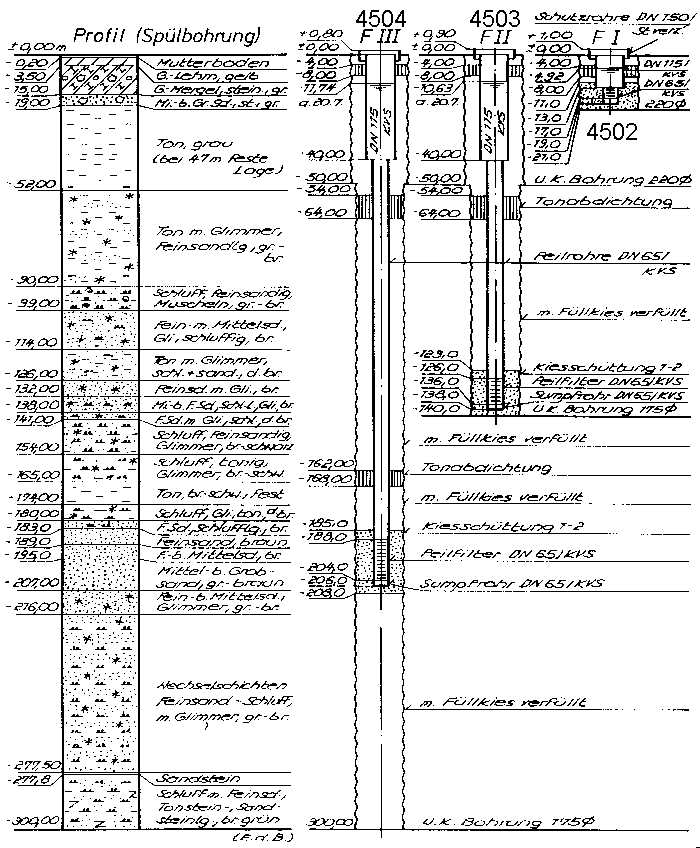 Profil (Spülbohrung)
± 0,00 m
- 0,20 Mutterboden
- 3,50 G-Lehm, gelb
- 15,00 G-Mergel, stein., gr.
- 19,00 Mi.-b. Gr. Sd., st., gr.
Ton, grau
(bei 47 m Feste
Lage)
- 52,00
Ton m. Glimmer,
Feinsandlg., gr.-
br.
- 90,00
Schluff, Feinsandig,
Muscheln, gr.-br.
- 99,00
Fein-m. Mittelsd.,
Gli., schluffig, br.
- 114,00
Ton m. Glimmer,
Schl. + sand., d. br.
- 126,00
Feinsd. m. Gli., br.
- 132,00
Mi.-b. F.Sd., Schl.l., Gli., br.
- 138,00
F.Sd. m. Gli., Schl., d. br.
- 141,00
Schluff, Feinsandig,
Glimmer, br-schwarz
- 154,00
Schluff, tonig,
Glimmer, br.-schw.
- 165,00
Ton, br-schw., fest
- 174,00
Schluff, Gli., ton., d. br.
- 180,00
F.Sd., Schluffig, br.
- 183,0
Feinsand, braun
- 189,0
F.-b. Mittelsd., br.
- 195,0
Mittel-b. Grob-
sand, gr.-braun
- 207,00
Fein-b. Mittelsd.,
Glimmer, gr.-br.
- 216,00
Wechselschichten
Feinsand-Schluff,
m. Glimmer, gr-br.
- 277,50
Sandstein
- 277,8
Schluff m. Feinsd.,
Tonstein-, Sand-
steinlg., br. grün
- 300,00
(E.d.B.)
4504
F III
+ 0,80
± 0,00
- 4,00
- 8,00
- 11,74
a. 20.7.
DN 115
KVS
- 40,00
- 50,00
- 54,00
- 64,00
- 162,00
- 168,00
- 185,0
- 188,0
- 204,0
- 206,0
- 208,0
- 300,00
4503
F II
+ 0,90
± 0,00
- 4,00
- 8,00
- 10,63
a. 20.7.
DN 115
KVS
- 40,00
- 50,00
- 54,00
- 64,00
- 123,0
- 126,0
- 136,0
- 138,0
- 140,0
Schutzrohre DN 150/
St verz.
+ 1,00
± 0,00
F I
- 4,00
- 4,92
- 8,00
- 11,0
- 13,0
- 17,0
- 19,0
- 21,0
DN 115/
KVS
DN 65/
KVS
220 Ø
4502
U.K. Bohrung 220 Ø
Tonabdichtung
Peilrohre DN 65/
KVS
m. Füllkies verfüllt
Kiesschüttung 1-2
Peilfilter DN 65/KVS
Sumpfrohr DN 65/KVS
U.K. Bohrung 175 Ø
m. Füllkies verfüllt
Tonabdichtung
m. Füllkies verfüllt
Kiesschüttung 1-2
Peilfilter DN 65/KVS
Sumpfrohr DN 65/KVS
m. Füllkies verfüllt
U.K. Bohrung 175 Ø